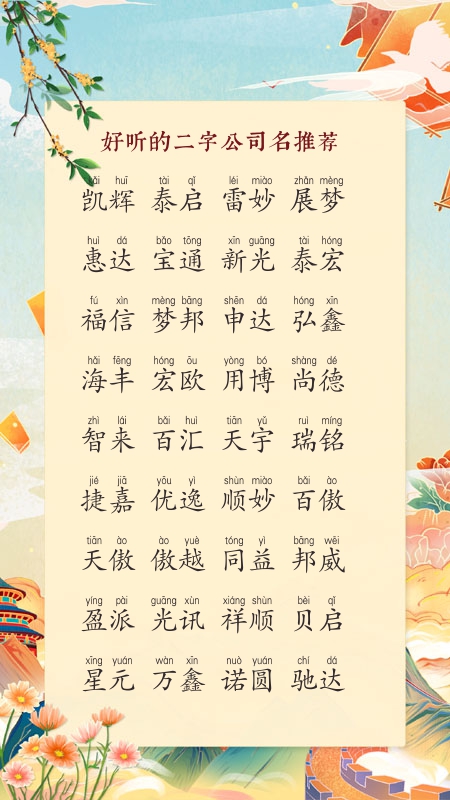 好听的二字公司名推荐
kǎi huī tài qǐ léi miào zhǎn mèng
凯辉 泰启 雷妙 展梦
huì dá bǎo tōng xīn guāng tài hóng
惠达 宝通 新光 泰宏
fú xìn mèng bāng shēn dá hóng xīn
福信 梦邦 申达 弘鑫
hǎi fēng hóng ōu yòng bó shàng dé
海丰 宏欧 用博 尚德
zhì lái bǎi huì tiān yǔ ruì míng
智来 百汇 天宇 瑞铭
jié jiā yōu yì shùn miào bǎi ào
捷嘉 优逸 顺妙 百傲
tiān ào ào yuè tóng yì bāng wēi
天傲 傲越 同益 邦威
yíng pài guāng xùn xiáng shùn bèi qǐ
盈派 光讯 祥顺 贝启
xīng yuán wàn xīn nuò yuán chí dá
星元 万鑫 诺圆 驰达